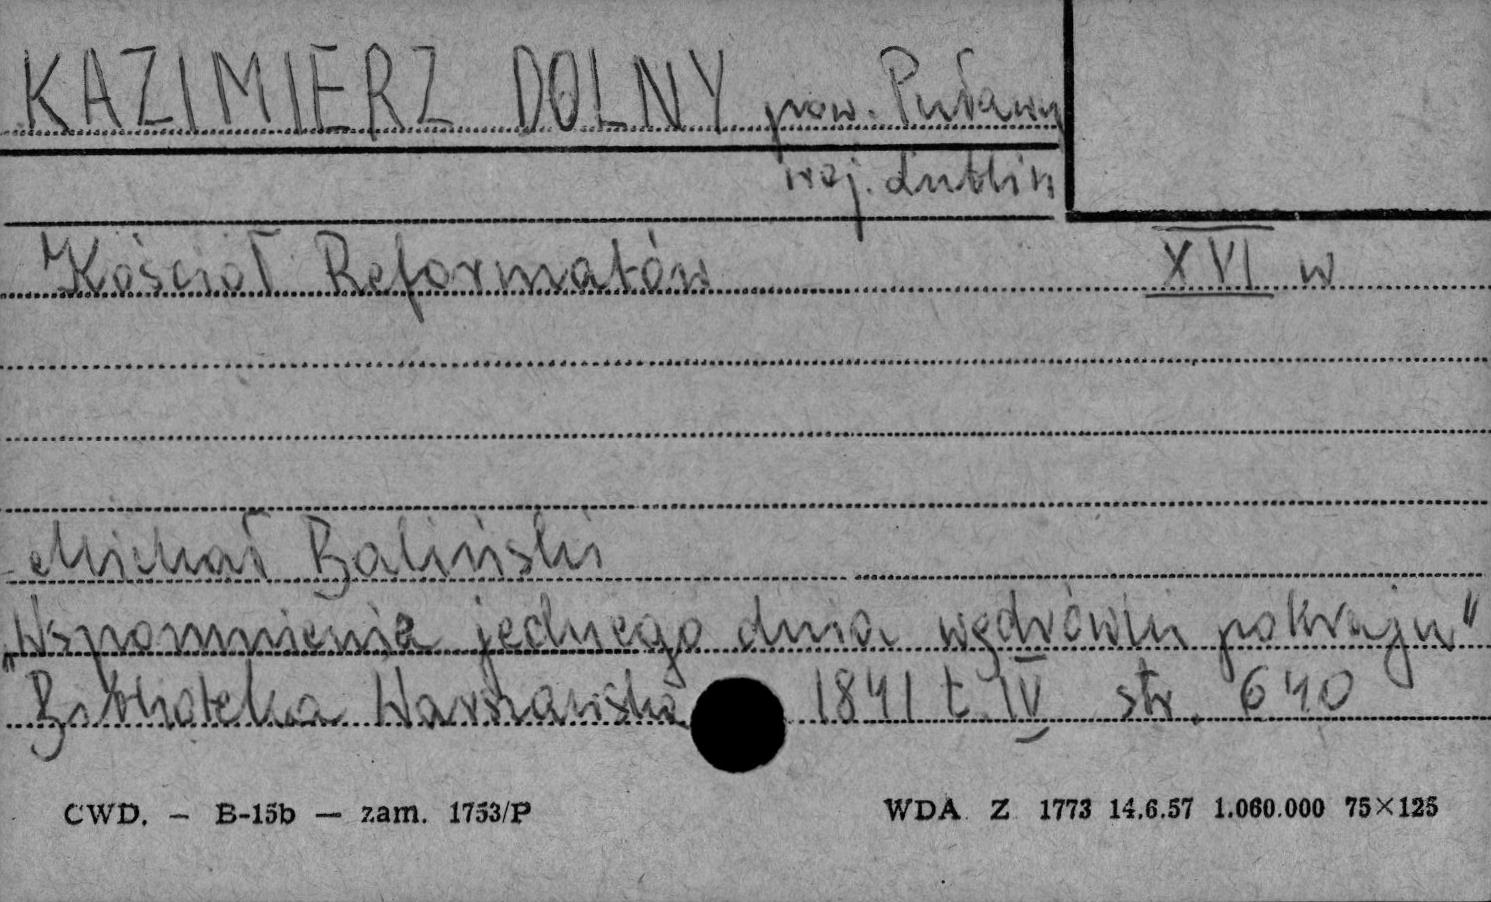 KAZIMIERZ DOLNY pow. Puławy
woj. Lublin
Kościoł Reformatów XVI w
Michał Baliński
„Wspomnienie jednego dnia wędrówki po kraju"
Biblioteka Warszawska 1841 t. IV str. 640
CWD. — B-15b — zam. 1753/P WDA Z 1773 14.6.57 1.060.000 75×125